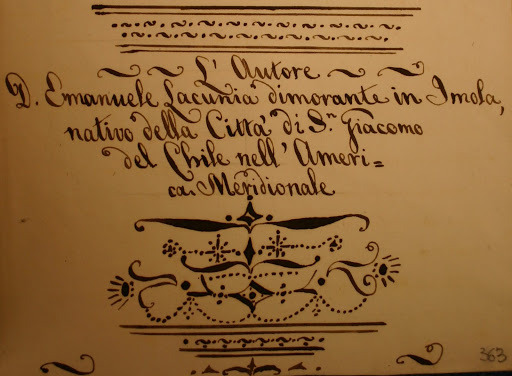 L' Autore
D. Emanuele Lacunia dimorante in Imola,
nativo della Città di S.n Giacomo
del Chile nell' Ameri=
ca. Meridionale
363